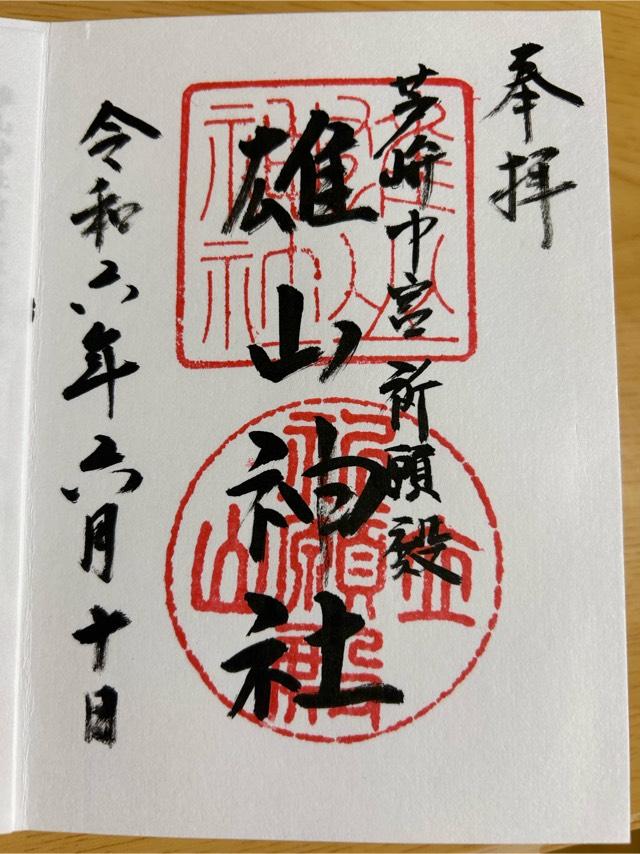 奉拝
芦峅中宮 祈願殿
雄山神社
令和六年六月十日
立山
祈願殿